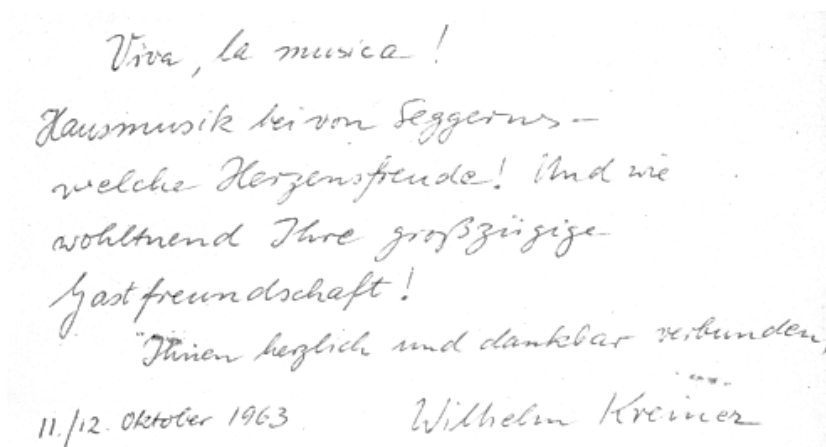 Viva, la musica!
Hausmusik bei von Seggerns –
welche Herzensfreude! Und wie
wohltuend Ihre großzügige
Gastfreundschaft!
Ihnen herzlich und dankbar verbunden,
Wilhelm Kreiner
11./12. Oktober 1963